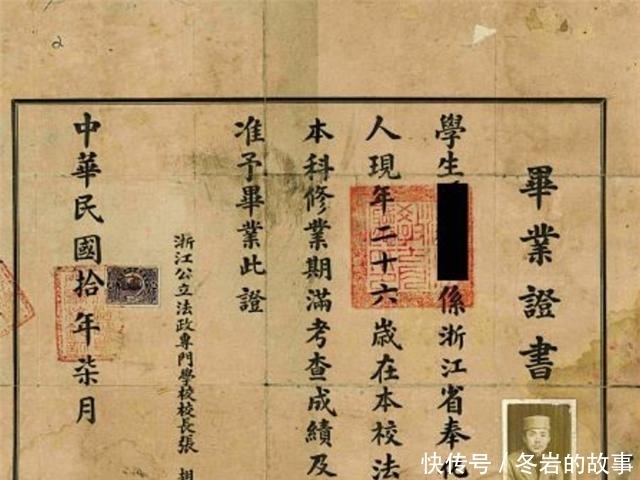 畢業證書
學生
係浙江省奉化
人現年二十六歲在本校法
本科修業期滿考查成績及
准予畢業此證
浙江公立法政專門學校校長張
中華民國拾年柒月
2
快传号／冬岩的故事